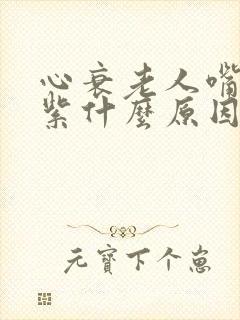 心衰老人嘴
紫什麼原因
元寶下个崽